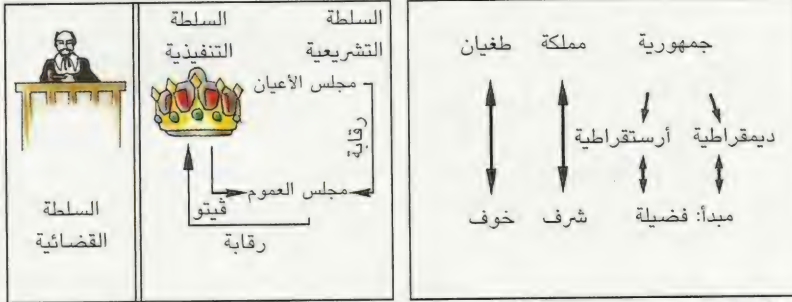 جمهورية مملكة طغيان
ديمقراطية أرستقراطية
مبدأ: فضيلة شرف خوف
السلطة التشريعية
السلطة التنفيذية
مجلس الأعيان
رقابة
مجلس العموم
ڤيتو
رقابة
السلطة القضائية